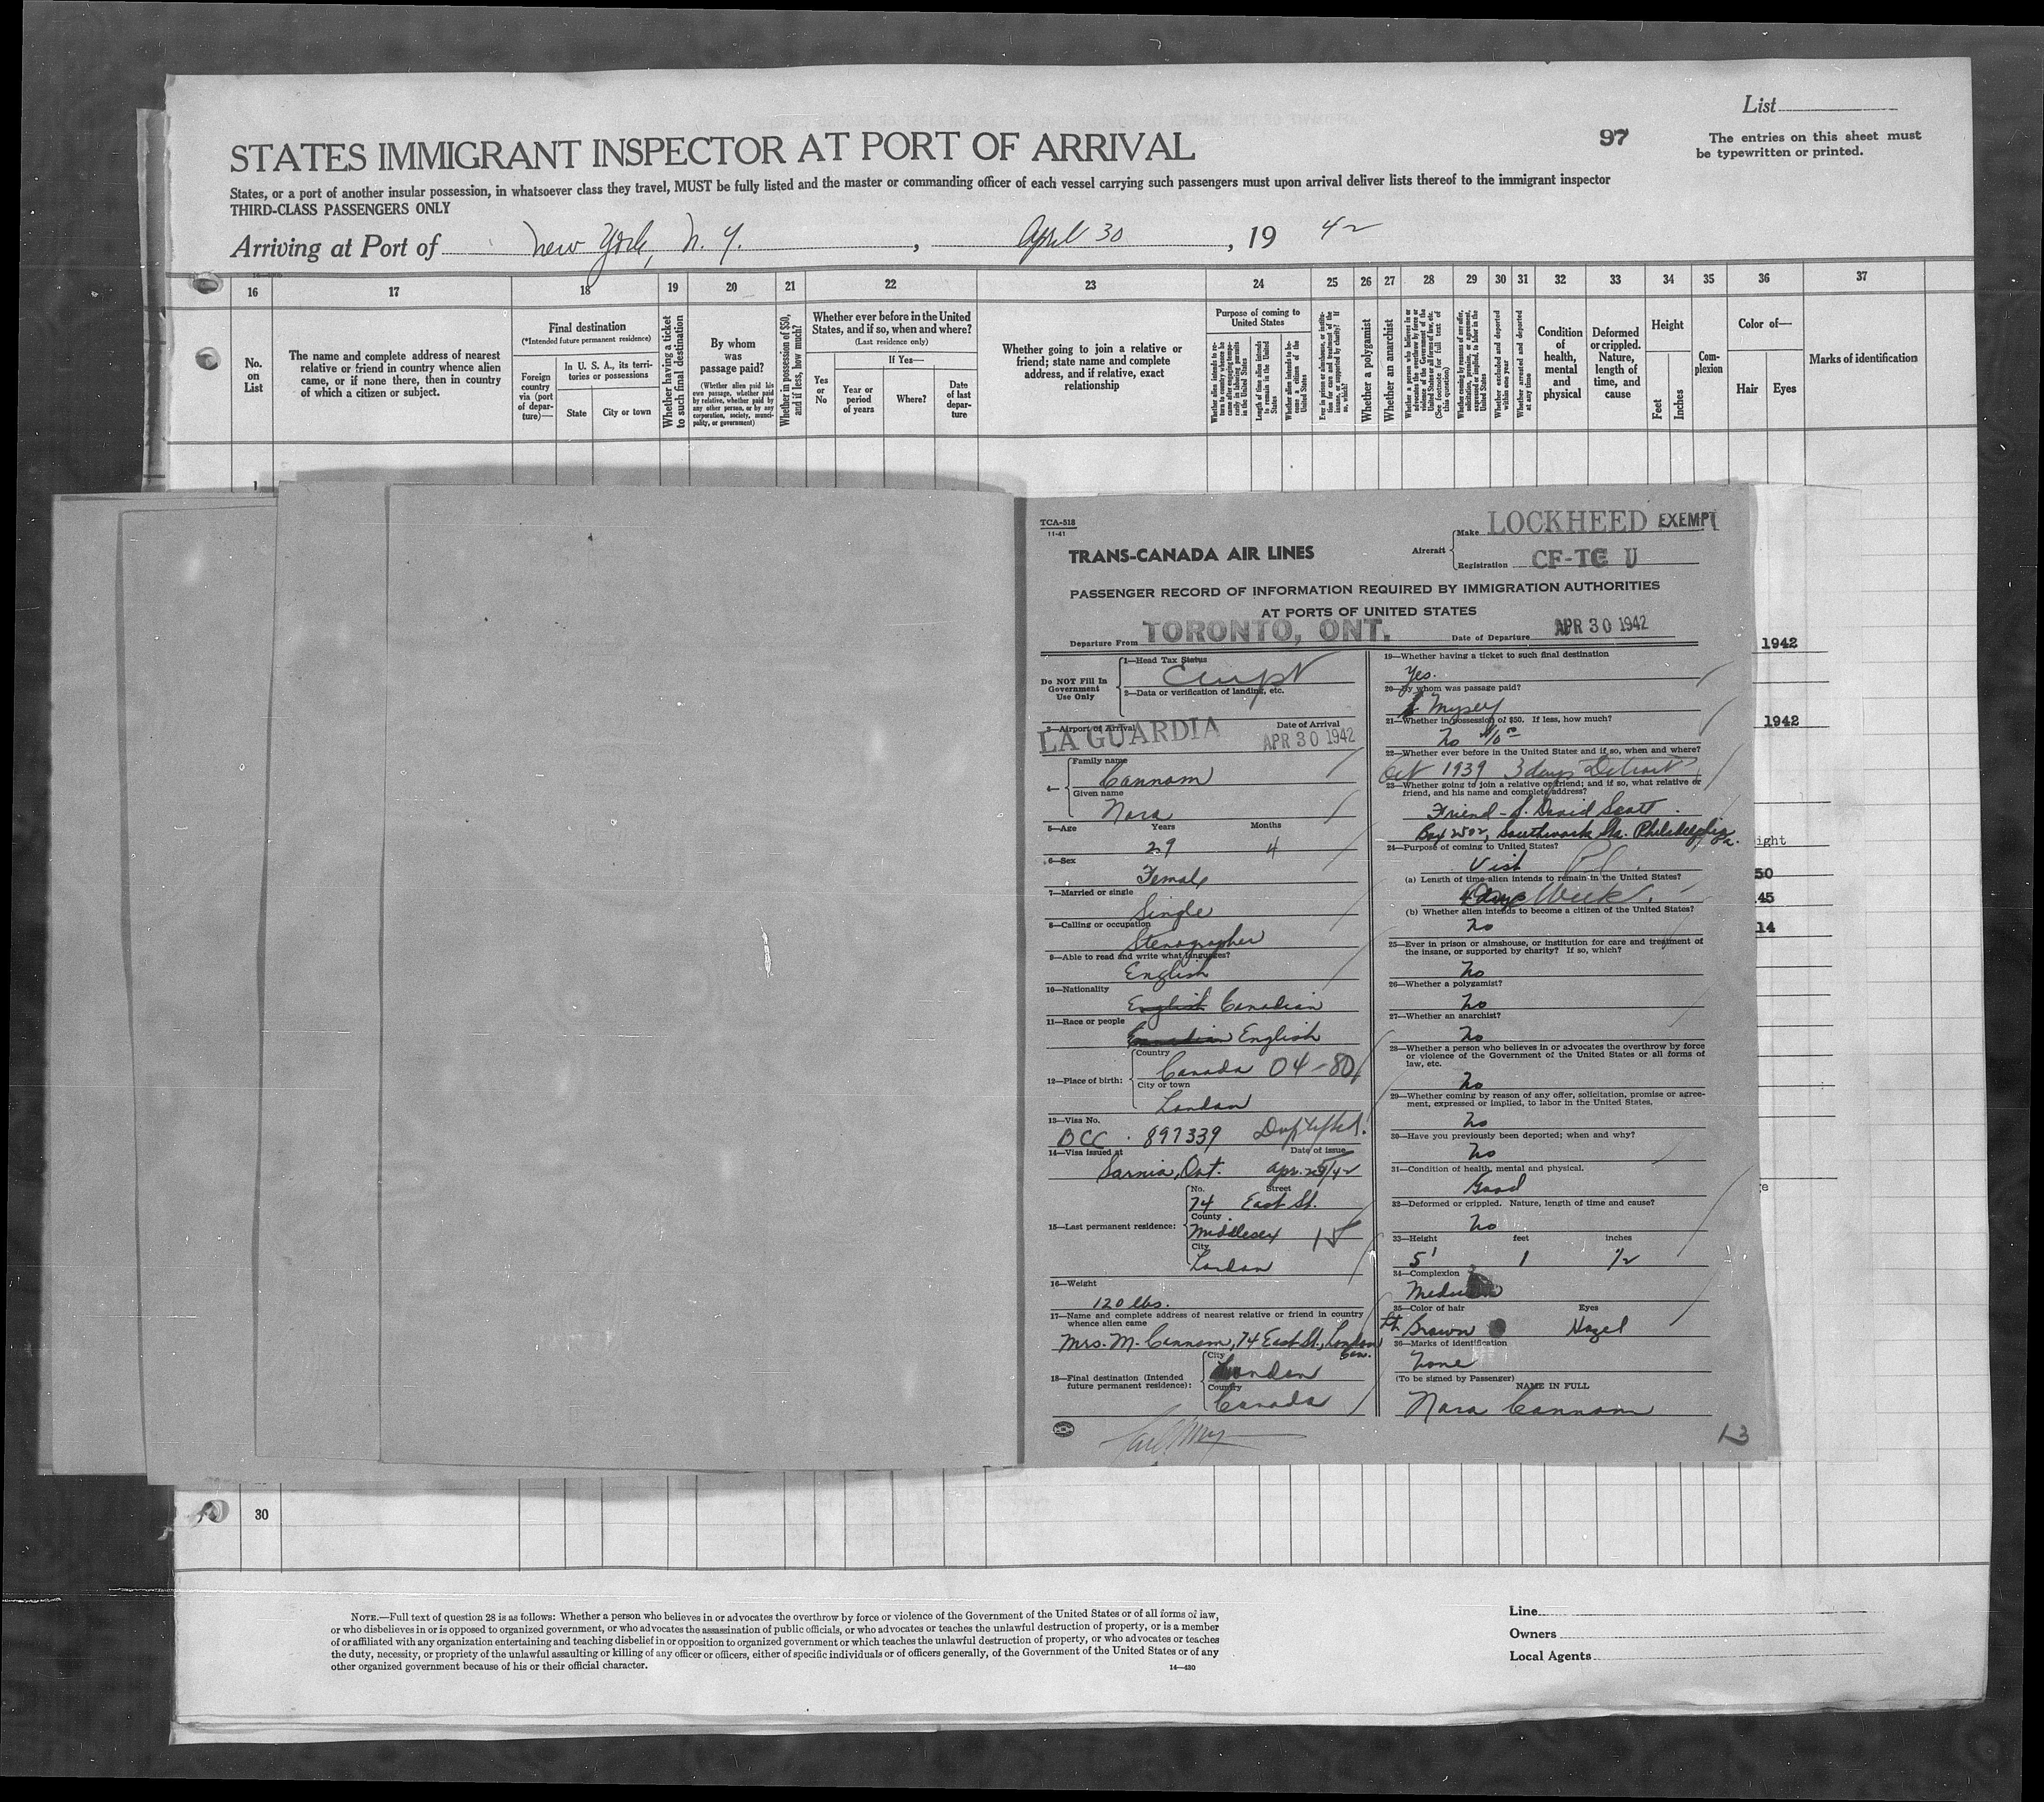 List
97
The entries on this sheet must
be typewritten or printed.
STATES IMMIGRANT INSPECTOR AT PORT OF ARRIVAL
States, or a port of another insular possession, in whatsoever class they travel, MUST be fully listed and the master or commanding officer of each vessel carrying such passengers must upon arrival deliver lists thereof to the immigrant inspector
THIRD-CLASS PASSENGERS ONLY
Arriving at Port of New York, N. Y., April 30, 19 42
16 17 18 19 20 21 22 23 24 25 26 27 28 29 30 31 32 33 34 35 36 37
No. on List
The name and complete address of nearest relative or friend in country whence alien came, or if none there, then in country of which a citizen or subject.
Final destination
(*Intended future permanent residence)
Foreign country via (port of departure)—
In U. S. A., its territories or possessions
State
City or town
Whether having a ticket to such final destination
By whom was passage paid?
(Whether alien paid his own passage, whether paid by relative, whether paid by any other person, or by any corporation, society, municipality, or government)
Whether in possession of $50, and if less, how much?
Whether ever before in the United States, and if so, when and where?
(Last residence only)
Yes or No
If Yes—
Year or period of years
Where?
Date of last departure
Whether going to join a relative or friend; state name and complete address, and if relative, exact relationship
Purpose of coming to United States
Length of time alien intends to remain in the United States
Whether alien intends to become a citizen of the United States
Whether a polygamist
Whether an anarchist
Whether excluded and deported within one year
Whether arrested and deported at any time
Condition of health, mental and physical
Deformed or crippled. Nature, length of time, and cause
Height
Feet
Inches
Complexion
Color of—
Hair
Eyes
Marks of identification
1
TCA-518
11-41
TRANS-CANADA AIR LINES
Aircraft
Make LOCKHEED EXEMPT
Registration CF-TC U
PASSENGER RECORD OF INFORMATION REQUIRED BY IMMIGRATION AUTHORITIES
AT PORTS OF UNITED STATES
Departure From TORONTO, ONT.
Date of Departure APR 30 1942
Do NOT Fill In
Government
Use Only
1—Head Tax Status
2—Data or verification of landing, etc.
3—Airport of Arrival
Date of Arrival
LA GUARDIA APR 30 1942
4—
Family name
Cannom
Given name
Nora
5—Age Years Months
29 4
6—Sex
Female
7—Married or single
Single
8—Calling or occupation
Stenographer
9—Able to read and write what languages?
English
10—Nationality
English Canadian
11—Race or people
Canadian English
12—Place of birth:
Country
Canada 04-80
City or town
London
13—Visa No.
BCC 897339
14—Visa issued at Date of issue
Sarnia, Ont. Apr. 29/42
15—Last permanent residence:
No. Street
74 East St.
County
Middlesex
City
London
16—Weight
120 lbs.
17—Name and complete address of nearest relative or friend in country
whence alien came
Mrs. M. Cannom, 74 East St., London
Can.
18—Final destination (Intended
future permanent residence):
City
London
Country
Canada
19—Whether having a ticket to such final destination
Yes.
20—By whom was passage paid?
Myself
21—Whether in possession of $50. If less, how much?
No
22—Whether ever before in the United States and if so, when and where?
Oct 1939 3 days Detroit
23—Whether going to join a relative or friend; and if so, what relative or
friend, and his name and complete address?
Friend - S. David Scott
Box 2502, Southwark Sta. Philadelphia
Pa.
24—Purpose of coming to United States?
Visit
(a) Length of time alien intends to remain in the United States?
Week
(b) Whether alien intends to become a citizen of the United States?
No
25—Ever in prison or almshouse, or institution for care and treatment of
the insane, or supported by charity? If so, which?
No
26—Whether a polygamist?
No
27—Whether an anarchist?
No
28—Whether a person who believes in or advocates the overthrow by force
or violence of the Government of the United States or all forms of
law, etc.
No
29—Whether coming by reason of any offer, solicitation, promise or agree-
ment, expressed or implied, to labor in the United States.
No
30—Have you previously been deported; when and why?
No
31—Condition of health, mental and physical.
Good
32—Deformed or crippled. Nature, length of time and cause?
No
33—Height feet inches
5' 1 1/2
34—Complexion
Medium
35—Color of hair Eyes
Brown Hazel
36—Marks of identification
None
(To be signed by Passenger)
NAME IN FULL
Nora Cannom
13
1942
1942
ight
50
45
14
30
NOTE.—Full text of question 28 is as follows: Whether a person who believes in or advocates the overthrow by force or violence of the Government of the United States or of all forms of law,
or who disbelieves in or is opposed to organized government, or who advocates the assassination of public officials, or who advocates or teaches the unlawful destruction of property, or is a member
of or affiliated with any organization entertaining and teaching disbelief in or opposition to organized government or which teaches the unlawful destruction of property, or who advocates or teaches
the duty, necessity, or propriety of the unlawful assaulting or killing of any officer or officers, either of specific individuals or of officers generally, of the Government of the United States or of any
other organized government because of his or their official character.
14—430
Line
Owners
Local Agents